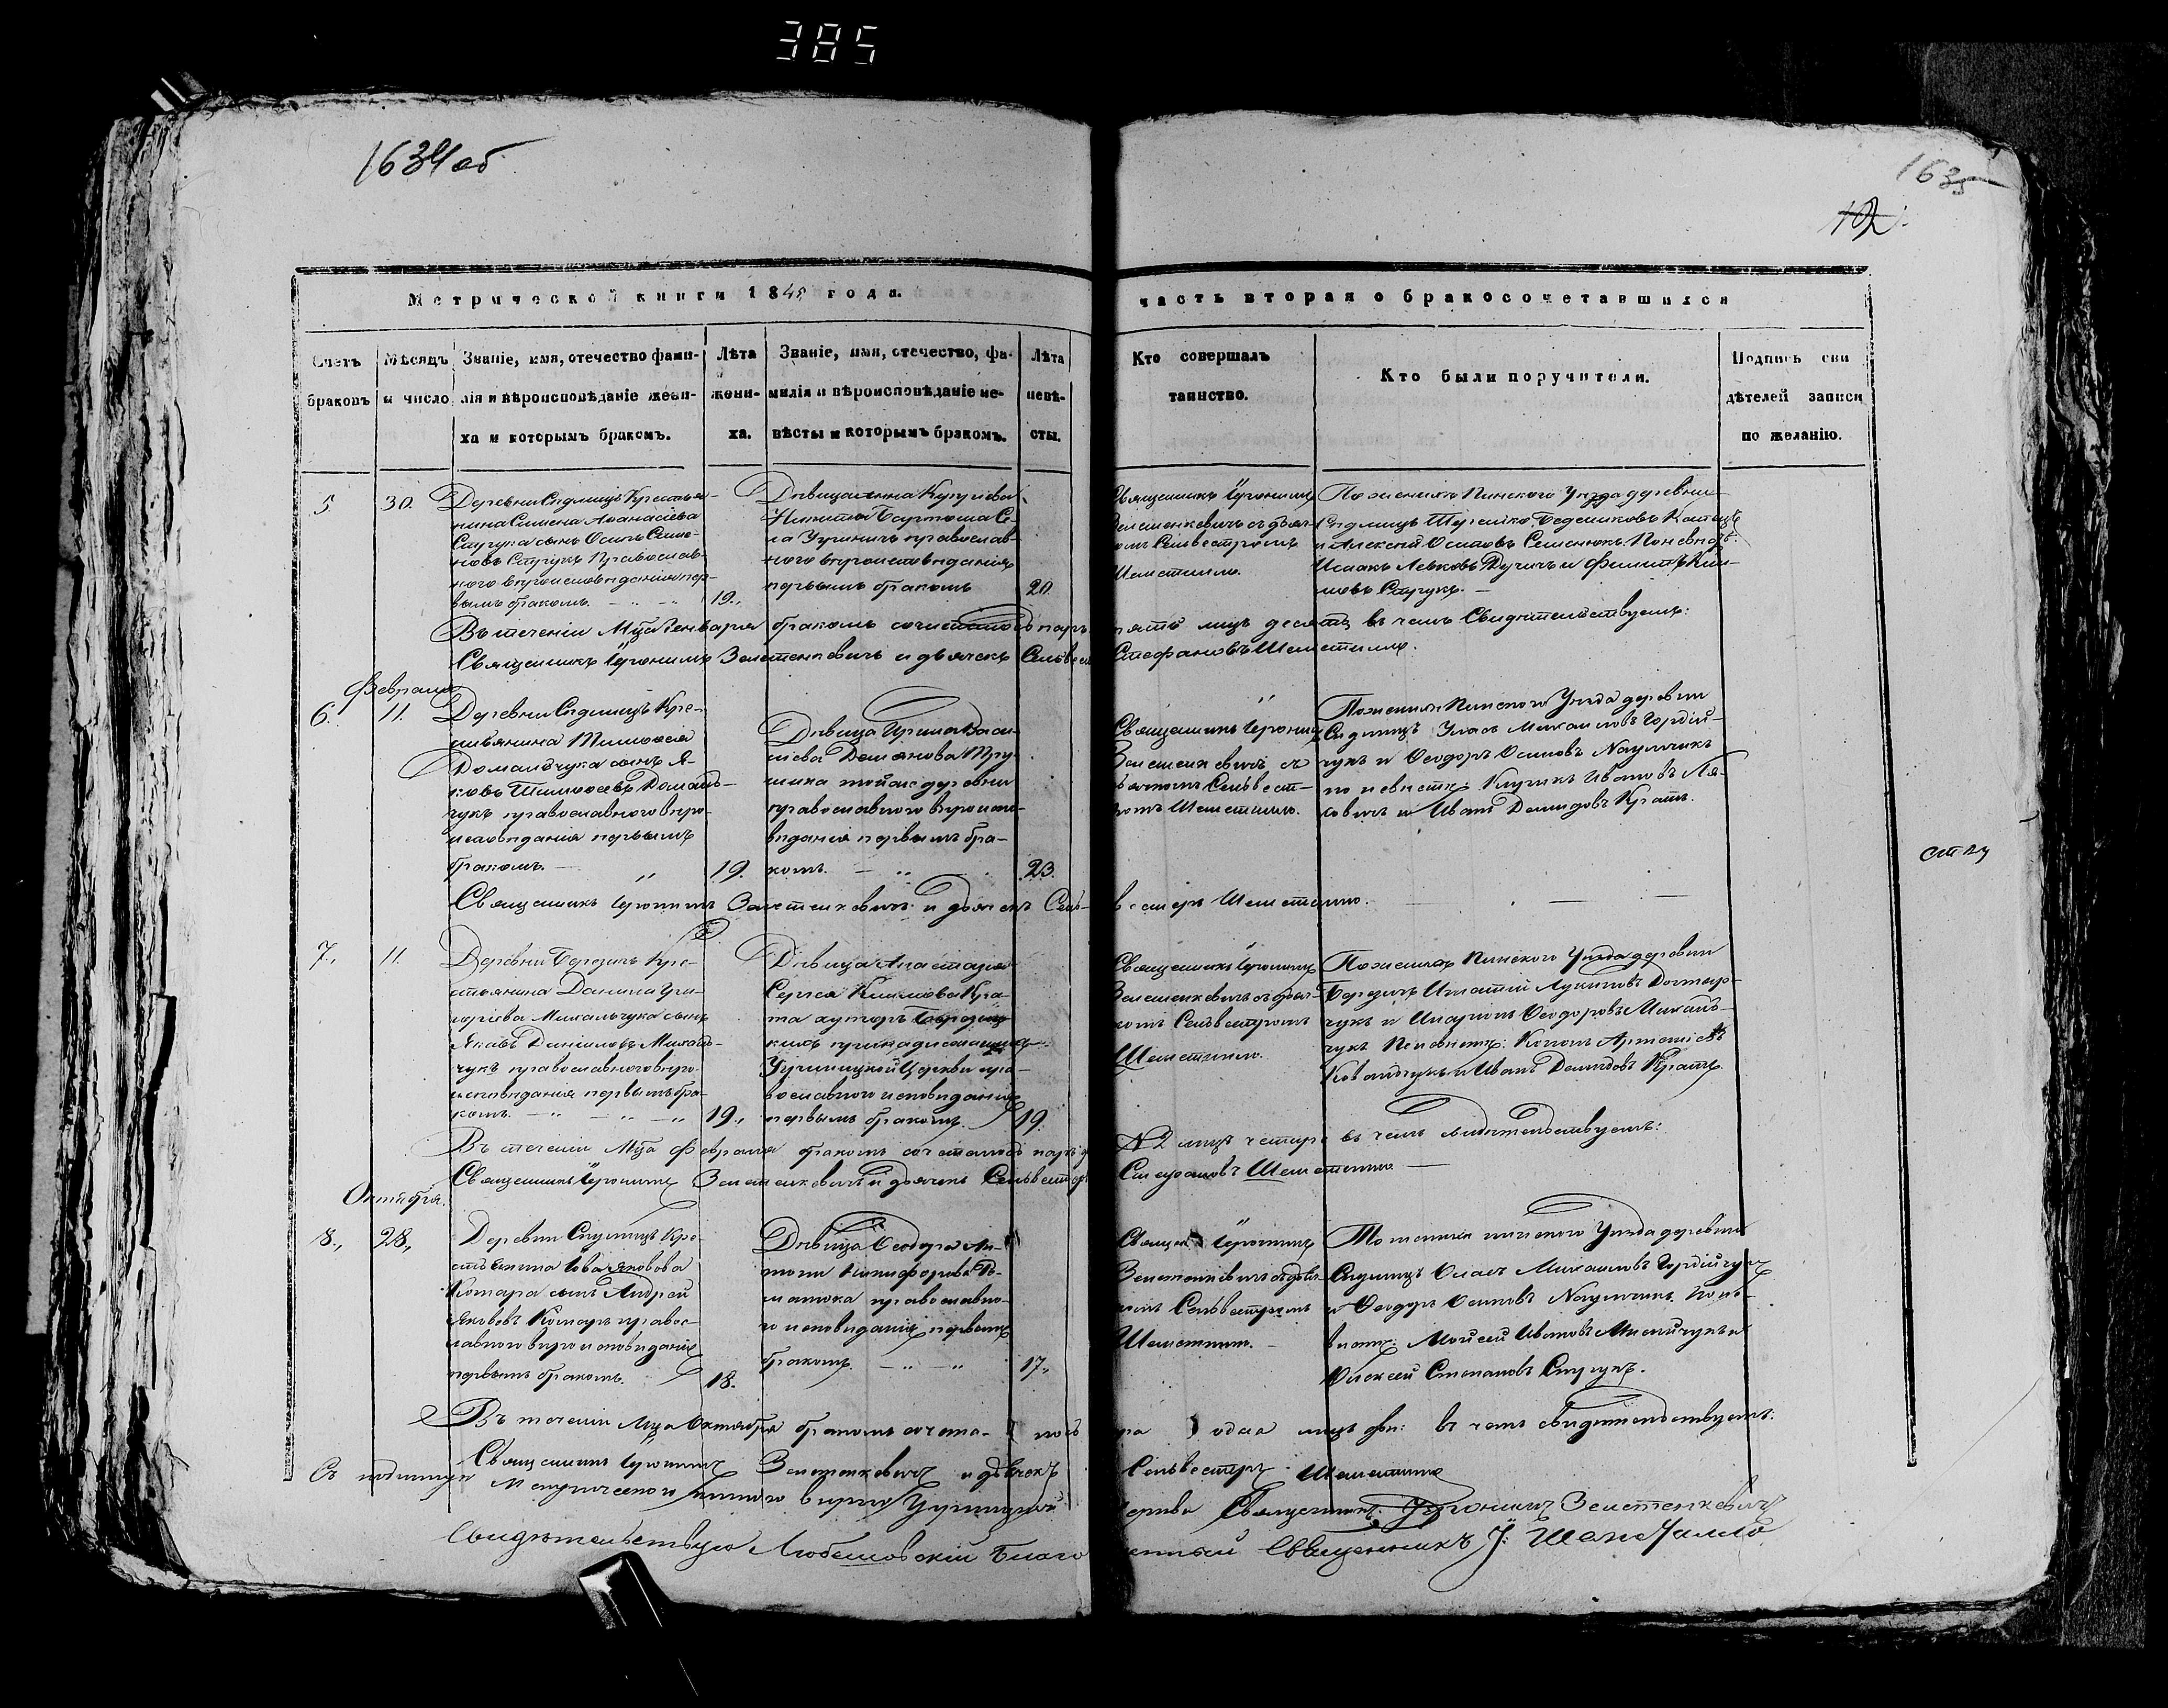 385
1634 об
1635
102.
Метрической книги 1848 года.
часть вторая о бракосочетавшихся
Счетъ браковъ
Мѣсяцъ и число
Званіе, имя, отечество фами-
лія и вѣроисповѣданіе жени-
ха и которымъ бракомъ.
Лѣта
жени-
ха.
Званіе, имя, отечество, фа-
милія и вѣроисповѣданіе не-
вѣсты и которымъ бракомъ.
Лѣта
невѣ-
сты.
Кто совершалъ
таинство.
Кто были поручители.
Подпись сви
дѣтелей записи
по желанію.
5
30.
Деревни Сядлищъ Крестья-
нина Симена Аѳанасіева
Струка сынъ Осипъ Семе-
новъ Струкъ Православ-
ного вѣроисповѣданія пер-
вымъ бракомъ.
19.,
Дѣвица
Никиты Бартоша Се-
ла Угриничъ православ-
ного вѣроисповѣданія
первымъ бракомъ
20.
Священникъ Іеронимъ
Земтенкевичъ съ дьяч-
комъ Сельвестромъ
Шеметилло.
По женихѣ Пинского Уѣзда деревни
Сядлищъ
и Алексѣй Осиповъ Семенюкъ. По невѣстѣ:
Исаакъ Левковъ и Филипъ Кли-
мовъ Струкъ.
Въ теченіи Мца Генваря бракомъ сочеталось паръ пять лицъ десять въ чемъ Свидѣтельствуемъ:
Священникъ Іеронимъ Земтенкевичъ и дьячекъ Сельвестръ Стефановъ Шеметилло.
Февраля
6.
11.
Деревни Сядлищъ Кре-
стьянина Тимоѳея
Доманчука сынъ Я-
ковъ Тимоѳеевъ Доман-
чукъ православного вѣро-
исповѣданія первымъ
бракомъ.
19.
Дѣвица Ирина Васи-
лiева Демянова
тойже деревни
православного вѣроиспо-
вѣданія первымъ бра-
комъ.
23.
Священникъ Іеронимъ
Земтенкевичъ съ
дьячкомъ Сельвест-
ромъ Шеметилло.
По женихѣ Пинского Уѣзда деревни
Сядлищъ Уласъ Михаиловъ Гордій-
чукъ и Ѳеодоръ Осиповъ Наумчикъ
по невѣстѣ: Ивановъ
и Иванъ Демидовъ Кратъ.
Священникъ Іеронимъ Земтенкевичъ и дьячекъ Сельвестръ Шеметилло.
ст 24
7.,
11.
Деревни Березичъ Кре-
стьянина Данила Гри-
горіева Михальчука сынъ
Яковъ Даниловъ Михаль-
чукъ православного вѣро-
исповѣданія первымъ бра-
комъ.
19.,
Дѣвица Анастасія
Сергея Климова Кра-
та хуторъ Березиц-
кихъ принадлежащихъ
Угриницкой Церкви пра-
вославного исповѣданія
первымъ бракомъ.
19.
Священникъ Іеронимъ
Земтенкевичъ съ дьяч-
комъ Сельвестромъ
Шеметилло.
По женихѣ Пинского Уѣзда деревни
Березичъ Игнатій Лукиновъ
и Ѳеодоровъ Михаль-
чукъ По невѣстѣ:
Ковальчукъ и Иванъ Демидовъ Кратъ.
Въ теченіи Мца Февраля бракомъ сочеталось паръ N 2 лицъ четыре въ чемъ свидѣтельствуемъ:
Священникъ Іеронимъ Земтенкевичъ и дьячекъ Сельвестръ Стефановъ Шеметилло
Октября.
8.,
28.,
Деревни Сядлищъ Кре-
стьянина Іова Яковова
Комара сынъ Андрей
Яковевъ Комаръ правос-
лавного вѣроисповѣданія
первымъ бракомъ.
18.
Дѣвица Ѳеодора Ан-
тони Никифорова
православно-
го исповѣданія первымъ
бракомъ.
17.,
Священ. Іеронимъ
Земтенкевичъ съ дьяч-
комъ Сельвестромъ
Шеметилло.
По женихѣ пинского Уѣзда деревни
Сядлищъ Оласъ Михаиловъ Гордійчукъ
и Ѳеодоръ Осиповъ Наумчикъ. По не-
вѣстѣ: Мойсей Ивановъ и
Олексей Степановъ Струкъ.
Въ теченіи Мца Октября бракомъ сочеталось пара одна лицъ двѣ: въ чемъ свидѣтельствуемъ:
Священникъ Іеронимъ Земтенкевичъ и дьячекъ Сельвестръ Шеметилло
Съ подлинную Метрическою книгою вѣрно Угриницкой Церкви Священникъ Іеронимъ Земтенкевичъ
Свидѣтельствую Любешовскій Благочинный Священникъ І: Шеметилло